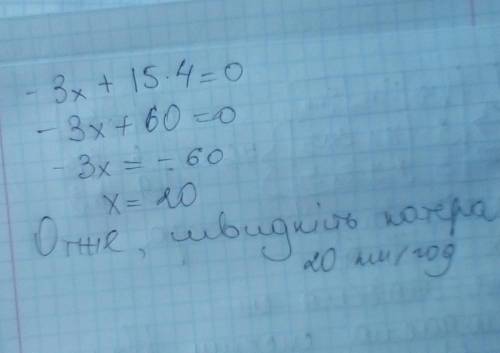 - 3x + 15·4 = 0
- 3x + 60 = 0
- 3x = - 60
x = 20
Отже, швидкість катера
20 км/год